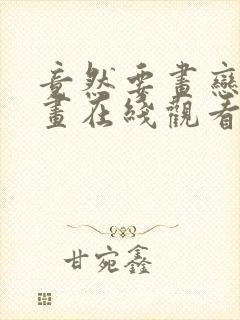 竟然要畫戀
畫在綫觀看
甘宛鑫